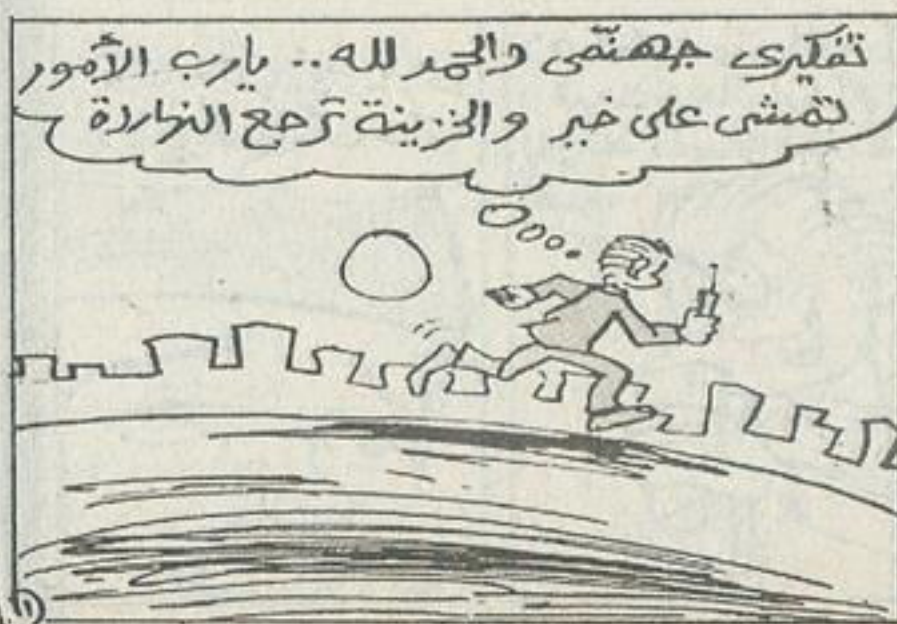 تفكيرى جهنّمى والحمد لله.. يارب الأمور
تمشى على خير والخزينة ترجع النهاردة
١